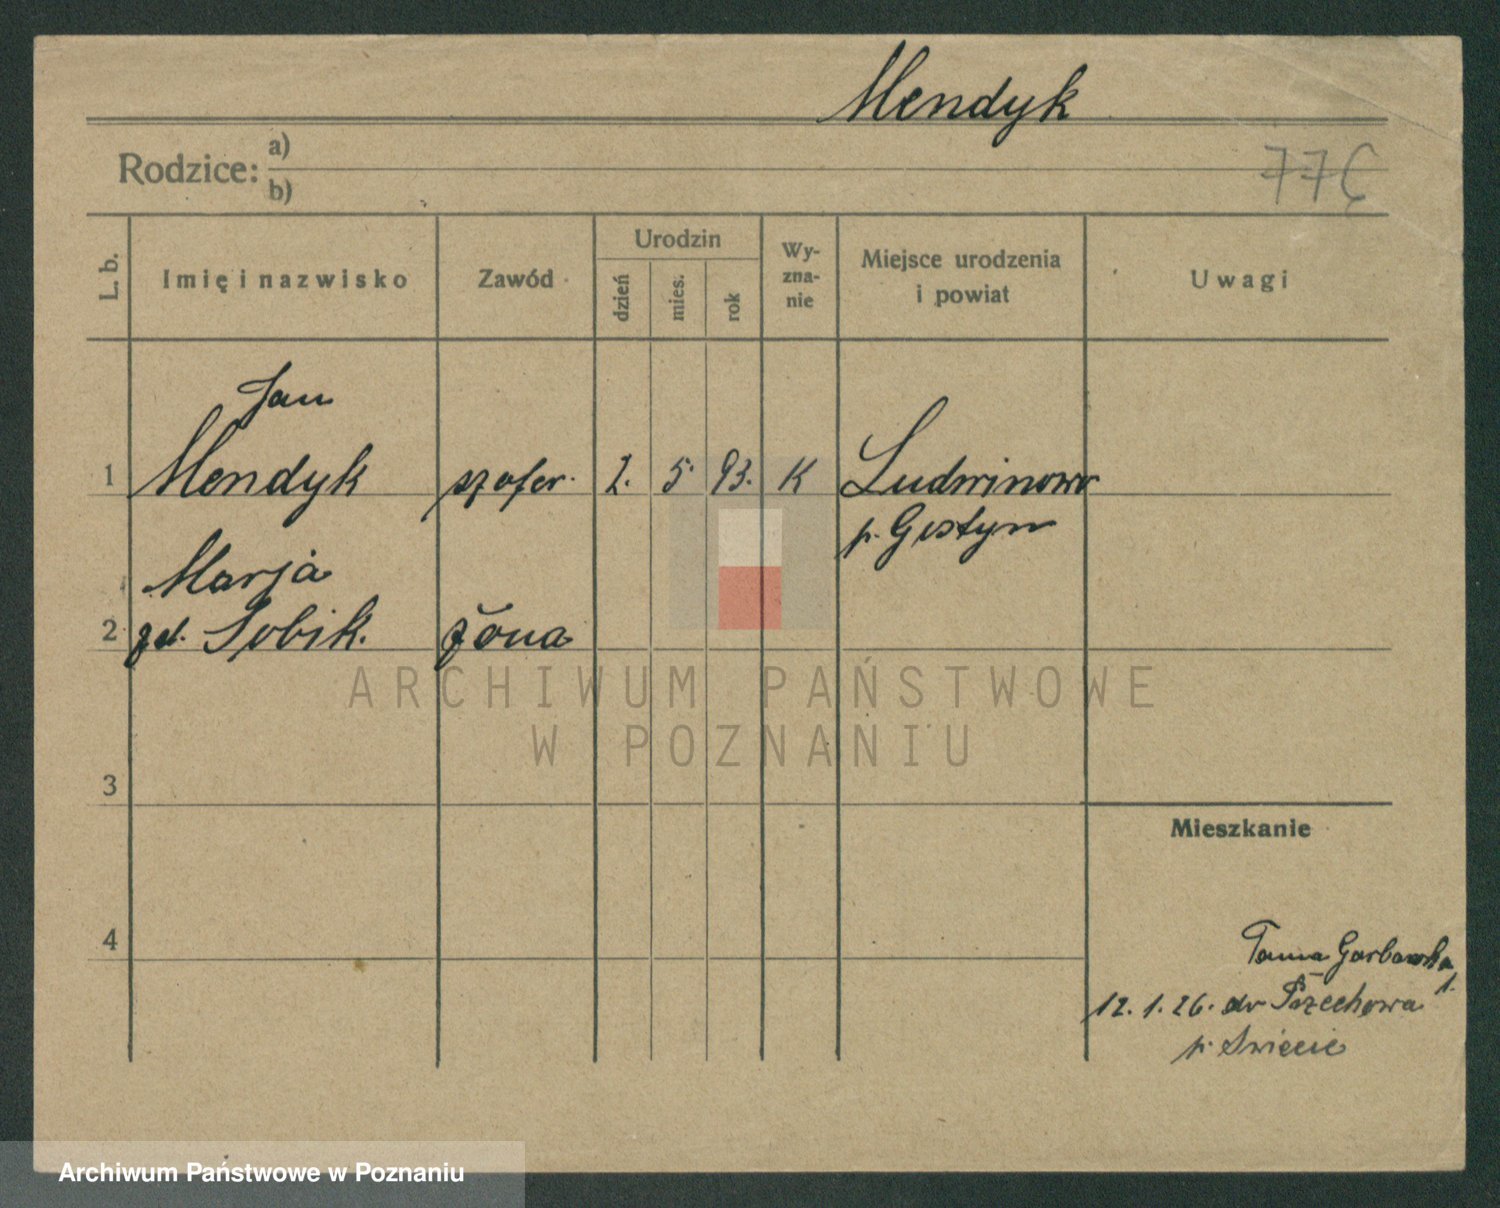 Mendyk
Rodzice: a)
b)
77C
L. b.
Imię i nazwisko
Zawód
Urodzin
dzień
mies.
rok
Wy-
zna-
nie
Miejsce urodzenia
i powiat
Uwagi
Jan
1 Mendyk szofer. 2. 5. 93. K Ludwinowo
p. Gostyn
Marja
2 zd. Sobik. żona
ARCHIWUM PAŃSTWOWE
W POZNANIU
3
Mieszkanie
4
Tama Garbarska
1.
12. 1. 26. do Przechowa
p. Świecie
Archiwum Państwowe w Poznaniu